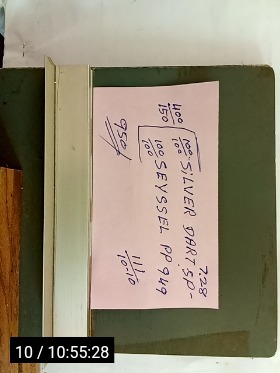 7.28
400/150 100/100 SILVER DART. SP-
100/100 SEYSSEL PP 949
950/
11/10/10
10 / 10:55:28